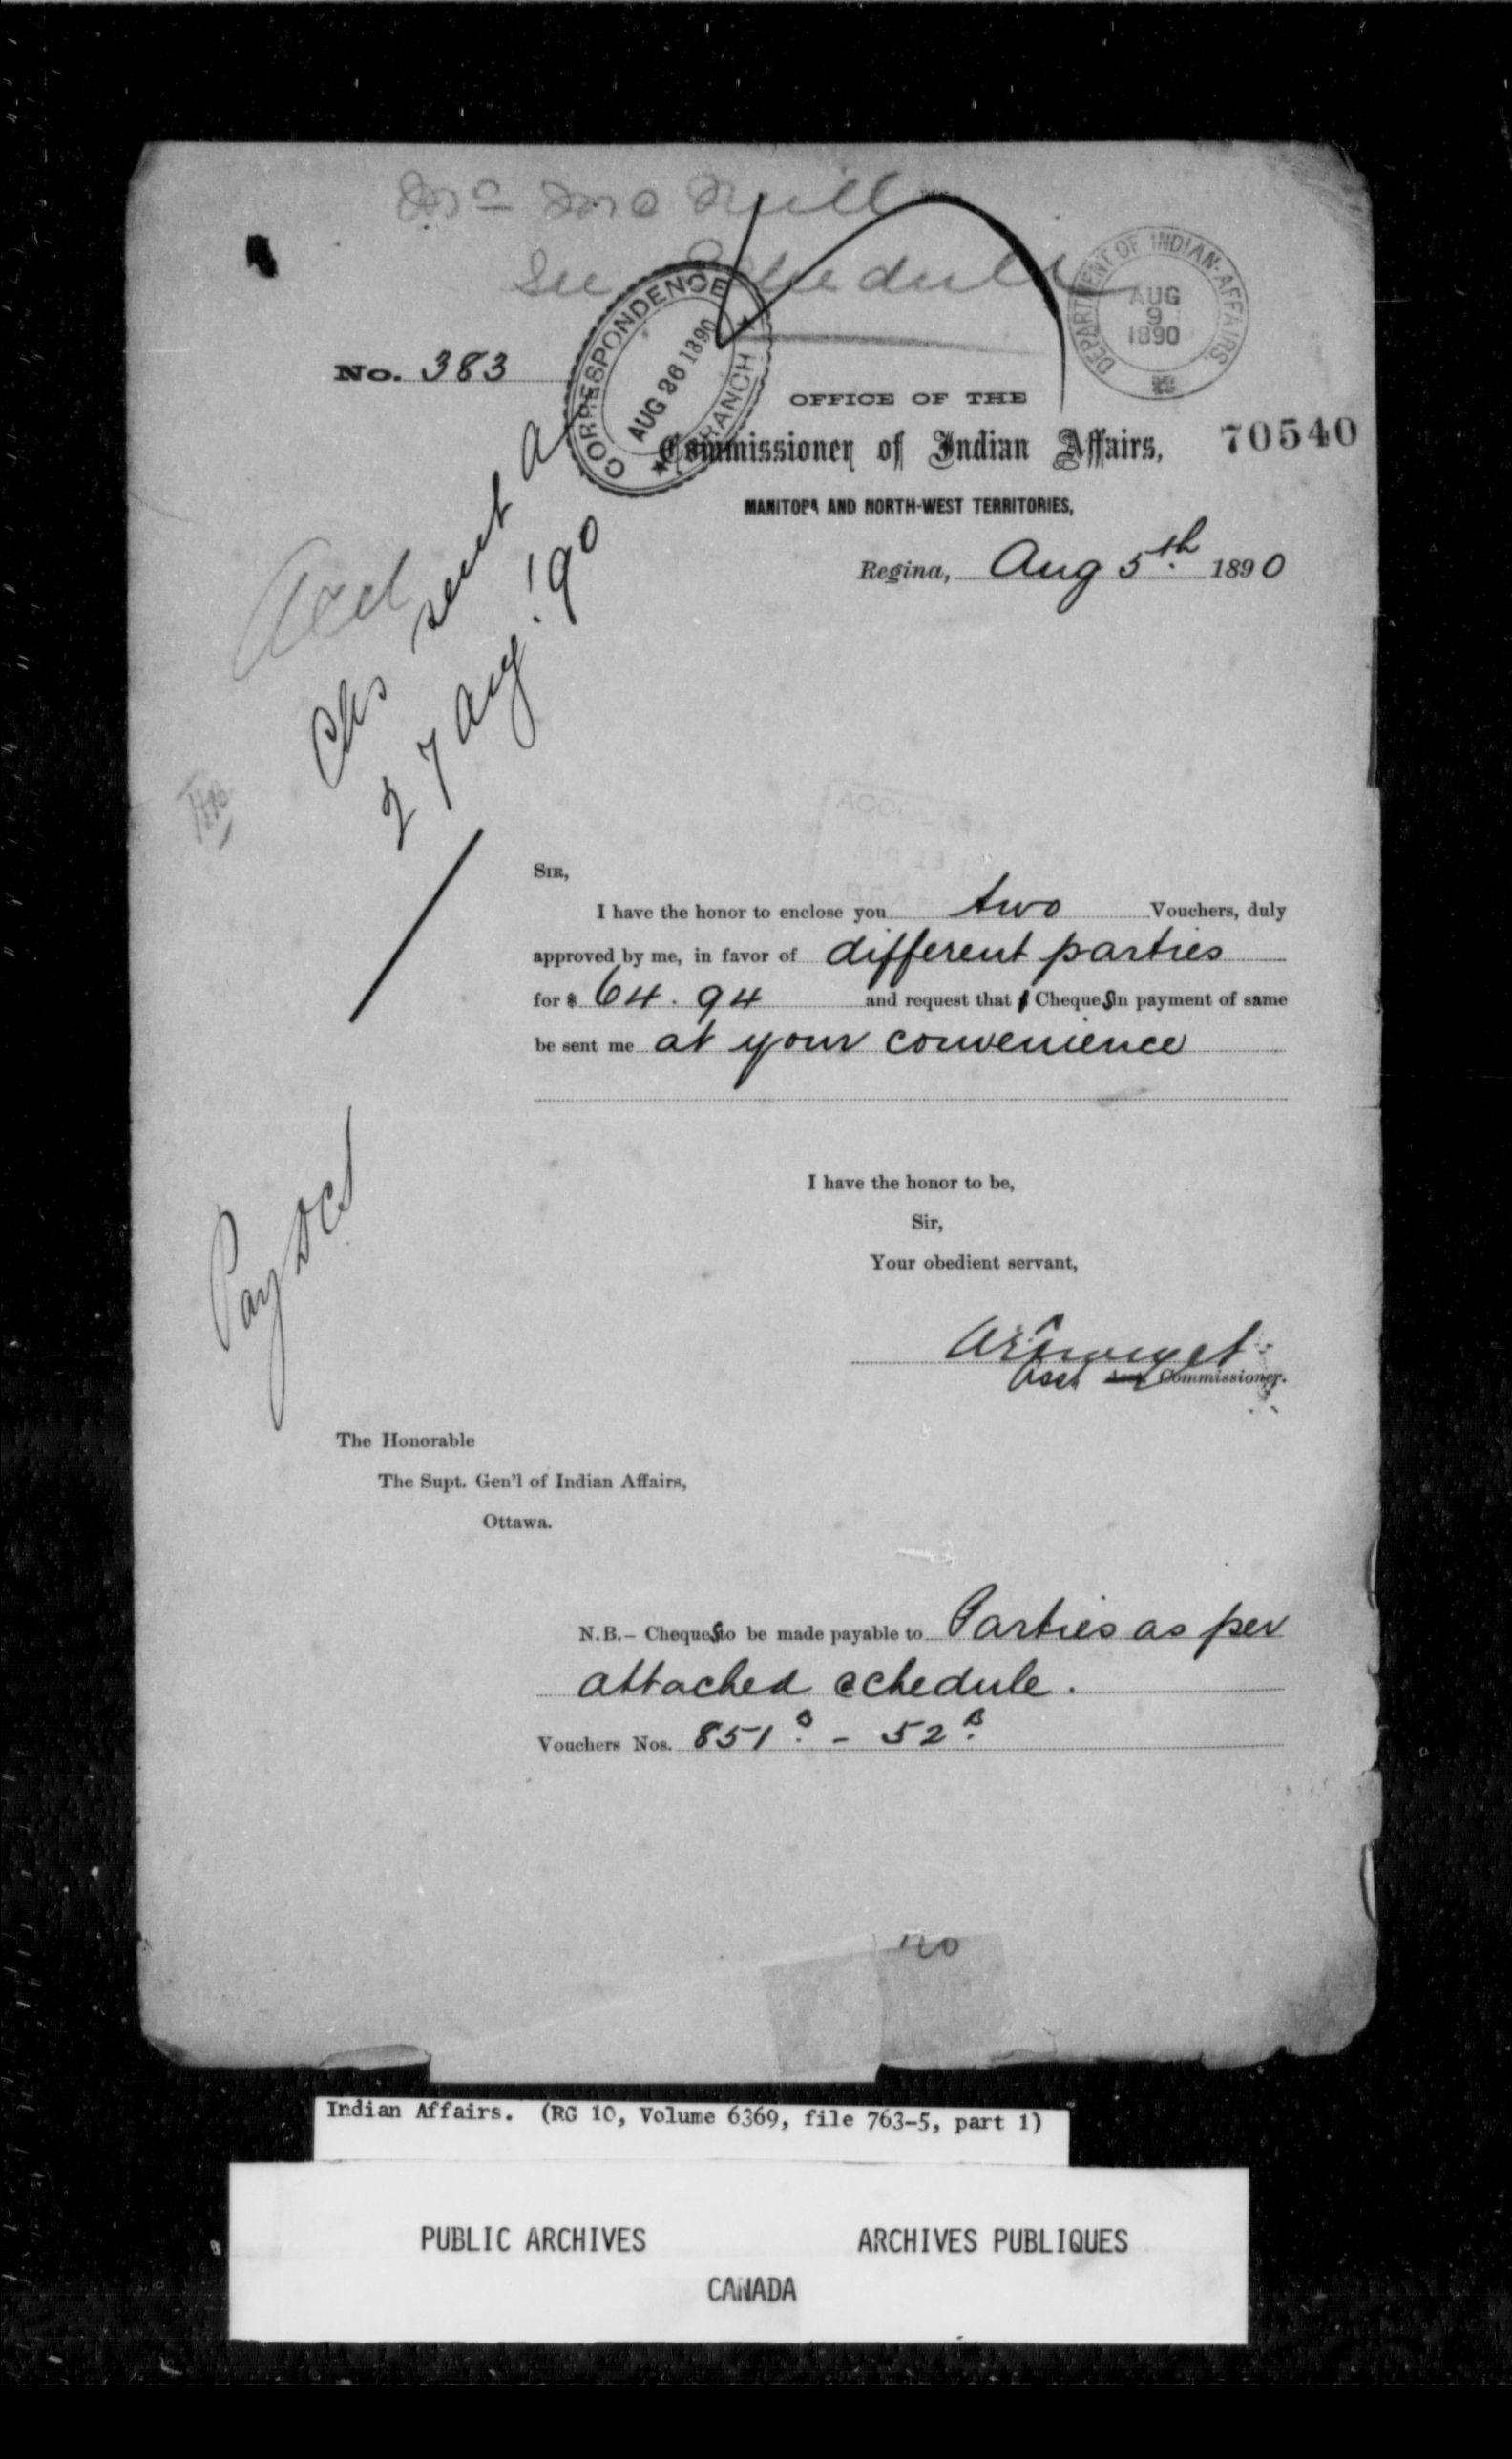 Mr McNeill
See Schedule
DEPARTMENT OF INDIAN-AFFAIRS.
AUG
9
1890
CORRESPONDENCE
AUG 26 1890
BRANCH
No. 383
OFFICE OF THE
Commissioner of Indian Affairs,
70540
MANITOBA AND NORTH-WEST TERRITORIES,
Regina, Aug 5th. 1890
Chs sent
27 Aug '90
SIR,
I have the honor to enclose you two Vouchers, duly
approved by me, in favor of different parties
for $ 64.94 and request that Cheques in payment of same
be sent me at your convenience
Pay
I have the honor to be,
Sir,
Your obedient servant,
AEForget
Asst Commissioner.
The Honorable
The Supt. Gen'l of Indian Affairs,
Ottawa.
N.B.— Cheques to be made payable to Parties as per
attached schedule.
Vouchers Nos. 851B. - 52B.
Indian Affairs. (RG 10, Volume 6369, file 763-5, part 1)
PUBLIC ARCHIVES ARCHIVES PUBLIQUES
CANADA